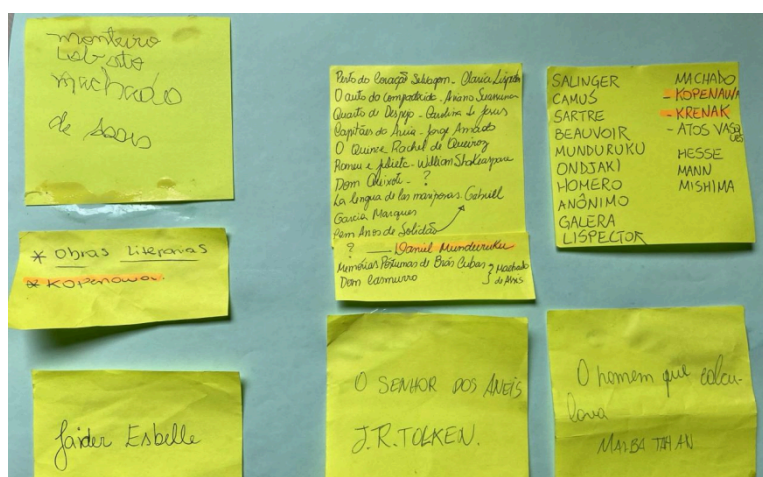 monteiro
Lobato
machado
de Assis
* Obras Literárias
* Kopenawa
Jaider Esbelle
Perto do Coração Selvagem - Clarice Lispector
O auto da Compadecida - Ariano Suassuna
Quarto de Despejo - Carolina de Jesus
Capitães da Areia - Jorge Amado
O Quinze Rachel de Queiroz
Romeu e Julieta - William Shakespeare
Dom Quixote - ?
La lengua de las mariposas. Gabriel
Garcia Marques
Cem Anos de Solidão
? Daniel Munduruku
Memórias Póstumas de Brás Cubas } Machado
Dom Casmurro } de Assis
SALINGER
CAMUS
SARTRE
BEAUVOIR
MUNDURUKU
ONDJAKI
HOMERO
ANÔNIMO
GALERA
LISPECTOR
MACHADO
- KOPENAWA
- KRENAK
- ATOS VASQUES
HESSE
MANN
MISHIMA
O SENHOR DOS ANEIS
J.R.TOLKEN.
O homem que calcu-
lava
MALBA TAHAN